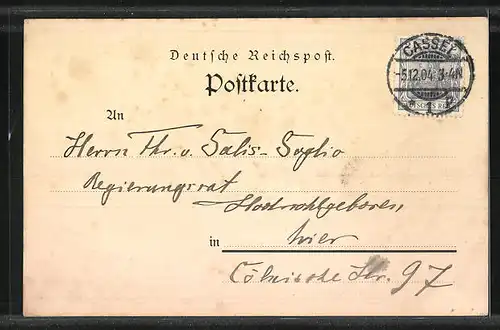 Deutsche Reichspost.
Postkarte.
CASSEL
-5.12.04 3-4N
1
An
Herrn Thr. v. Salis-Soglio
Regierungsrat
Hochwohlgeboren
in Trier
Cölnische Str. 97